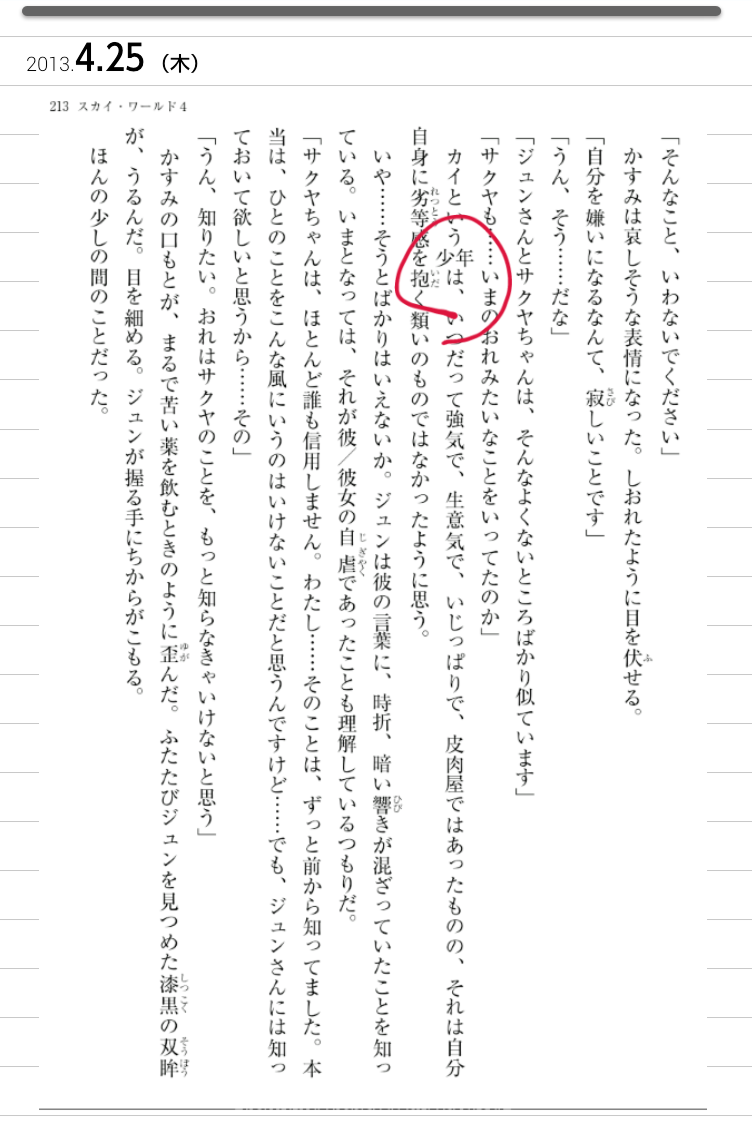 2013.4.25（木）
213 スカイ・ワールド4
「そんなこと、いわないでください」
かすみは哀しそうな表情になった。しおれたように目を伏せる。
「自分を嫌いになるなんて、寂しいことです」
「うん、そう……だな」
「ジュンさんとサクヤちゃんは、そんなよくないところばかり似ています」
「サクヤも……いまのおれみたいなことをいってたのか」
カイという少年は、いつだって強気で、生意気で、いじっぱりで、皮肉屋ではあったものの、それは自分
自身に劣等感を抱く類いのものではなかったように思う。
いや……そうとばかりはいえないか。ジュンは彼の言葉に、時折、暗い響きが混ざっていたことを知っ
ている。いまとなっては、それが彼／彼女の自虐であったことも理解しているつもりだ。
「サクヤちゃんは、ほとんど誰も信用しません。わたし……そのことは、ずっと前から知ってました。本
当は、ひとのことをこんな風にいうのはいけないことだと思うんですけど……でも、ジュンさんには知っ
ておいて欲しいと思うから……その」
「うん、知りたい。おれはサクヤのことを、もっと知らなきゃいけないと思う」
かすみの口もとが、まるで苦い薬を飲むときのように歪んだ。ふたたびジュンを見つめた漆黒の双眸
が、うるんだ。目を細める。ジュンが握る手にちからがこもる。
ほんの少しの間のことだった。